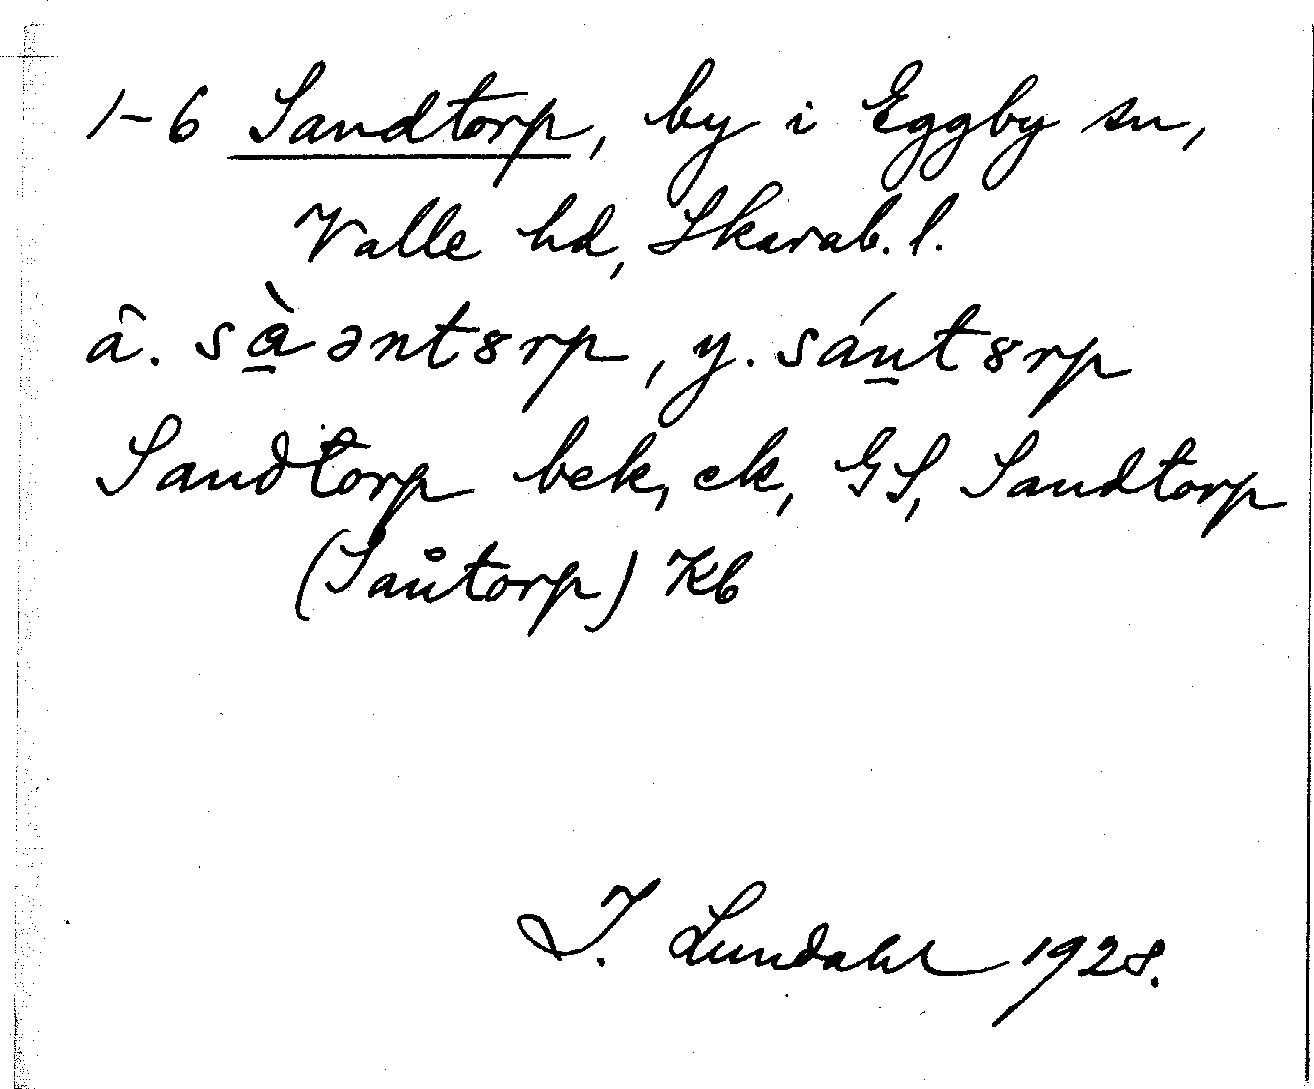 1-6 Sandtorp, by i Eggby sn,
Valle hd, Skarab. l.
ä. sà̱əntȣrp, y. sáṉtȣrp
Sandtorp bek, ek, GS, Sandtorp
(Santorp) Kb
I. Lundahl 1928.